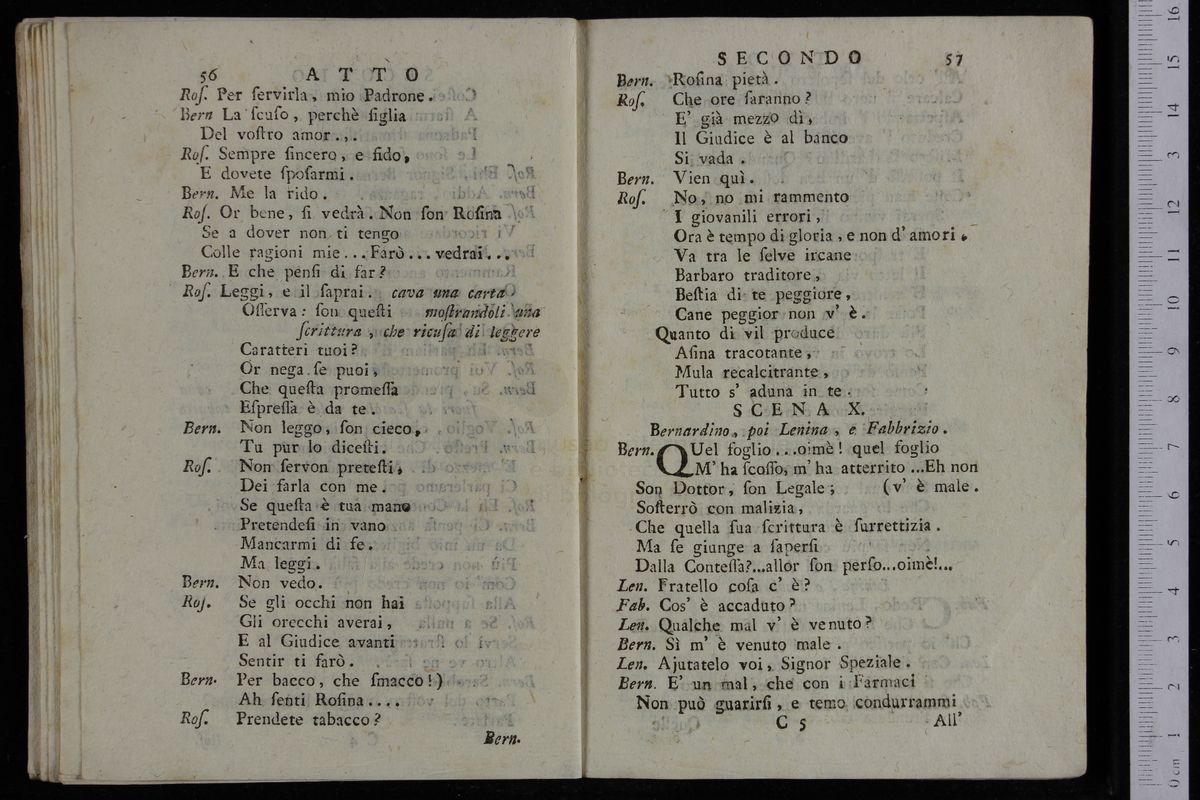 56 A T T O
Roſ. Per ſervirla, mio Padrone.
Bern La ſcuſo, perchè figlia
Del voſtro amor...
Roſ. Sempre ſincero, e fido,
E dovete ſpoſarmi.
Bern. Me la rido.
Roſ. Or bene, ſi vedrà. Non ſon Roſina
Se a dover non ti tengo
Colle ragioni mie... Farò... vedrai...
Bern. E che penſi di far?
Roſ. Leggi, e il ſaprai. cava una carta
Oſſerva: ſon queſti moſtrandoli una
ſcrittura, che ricuſa di leggere
Caratteri tuoi?
Or nega ſe puoi,
Che queſta promeſſa
Eſpreſſa è da te.
Bern. Non leggo, ſon cieco,
Tu pur lo diceſti.
Roſ. Non ſervon preteſti,
Dei farla con me.
Se queſta è tua mano
Pretendeſi in vano
Mancarmi di fe.
Ma leggi.
Bern. Non vedo.
Roſ. Se gli occhi non hai
Gli orecchi averai,
E al Giudice avanti
Sentir ti farò.
Bern. Per bacco, che ſmacco!)
Ah ſenti Roſina....
Roſ. Prendete tabacco?
Bern.
SECONDO 57
Bern. Roſina pietà.
Roſ. Che ore ſaranno?
E' già mezzo dì,
Il Giudice è al banco
Si vada.
Bern. Vien quì.
Roſ. No, no mi rammento
I giovanili errori,
Ora è tempo di gloria, e non d' amori.
Va tra le ſelve ircane
Barbaro traditore,
Beſtia di te peggiore,
Cane peggior non v' è.
Quanto di vil produce
Aſina tracotante,
Mula recalcitrante,
Tutto s' aduna in te.
SCENA X.
Bernardino, poi Lenina, e Fabbrizio.
Bern. QUel foglio...oimè! quel foglio
M' ha ſcoſſo, m' ha atterrito ...Eh non
Son Dottor, ſon Legale; (v' è male.
Soſterrò con malizia,
Che quella ſua ſcrittura è ſurrettizia.
Ma ſe giunge a ſaperſi
Dalla Conteſſa?...allor ſon perſo...oimè!...
Len. Fratello coſa c' è?
Fab. Cos' è accaduto?
Len. Qualche mal v' è venuto?
Bern. Sì m' è venuto male.
Len. Ajutatelo voi, Signor Speziale.
Bern. E' un mal, che con i Farmaci
Non può guarirſi, e temo condurrammi
C 5 All'